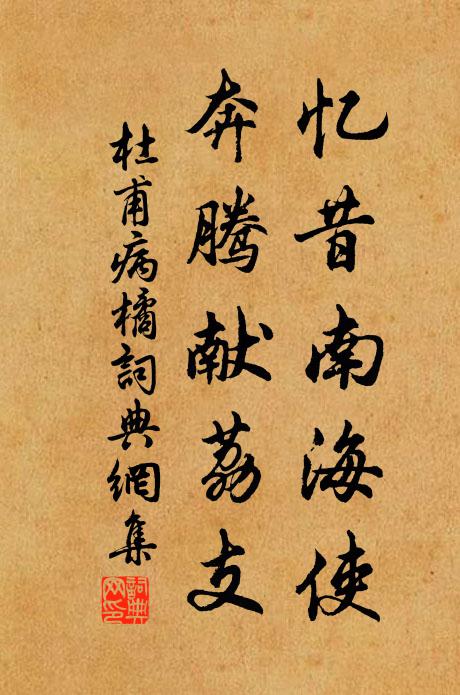 忆昔南海使
奔腾献荔支
杜甫病橘詞典網集
詞典网印